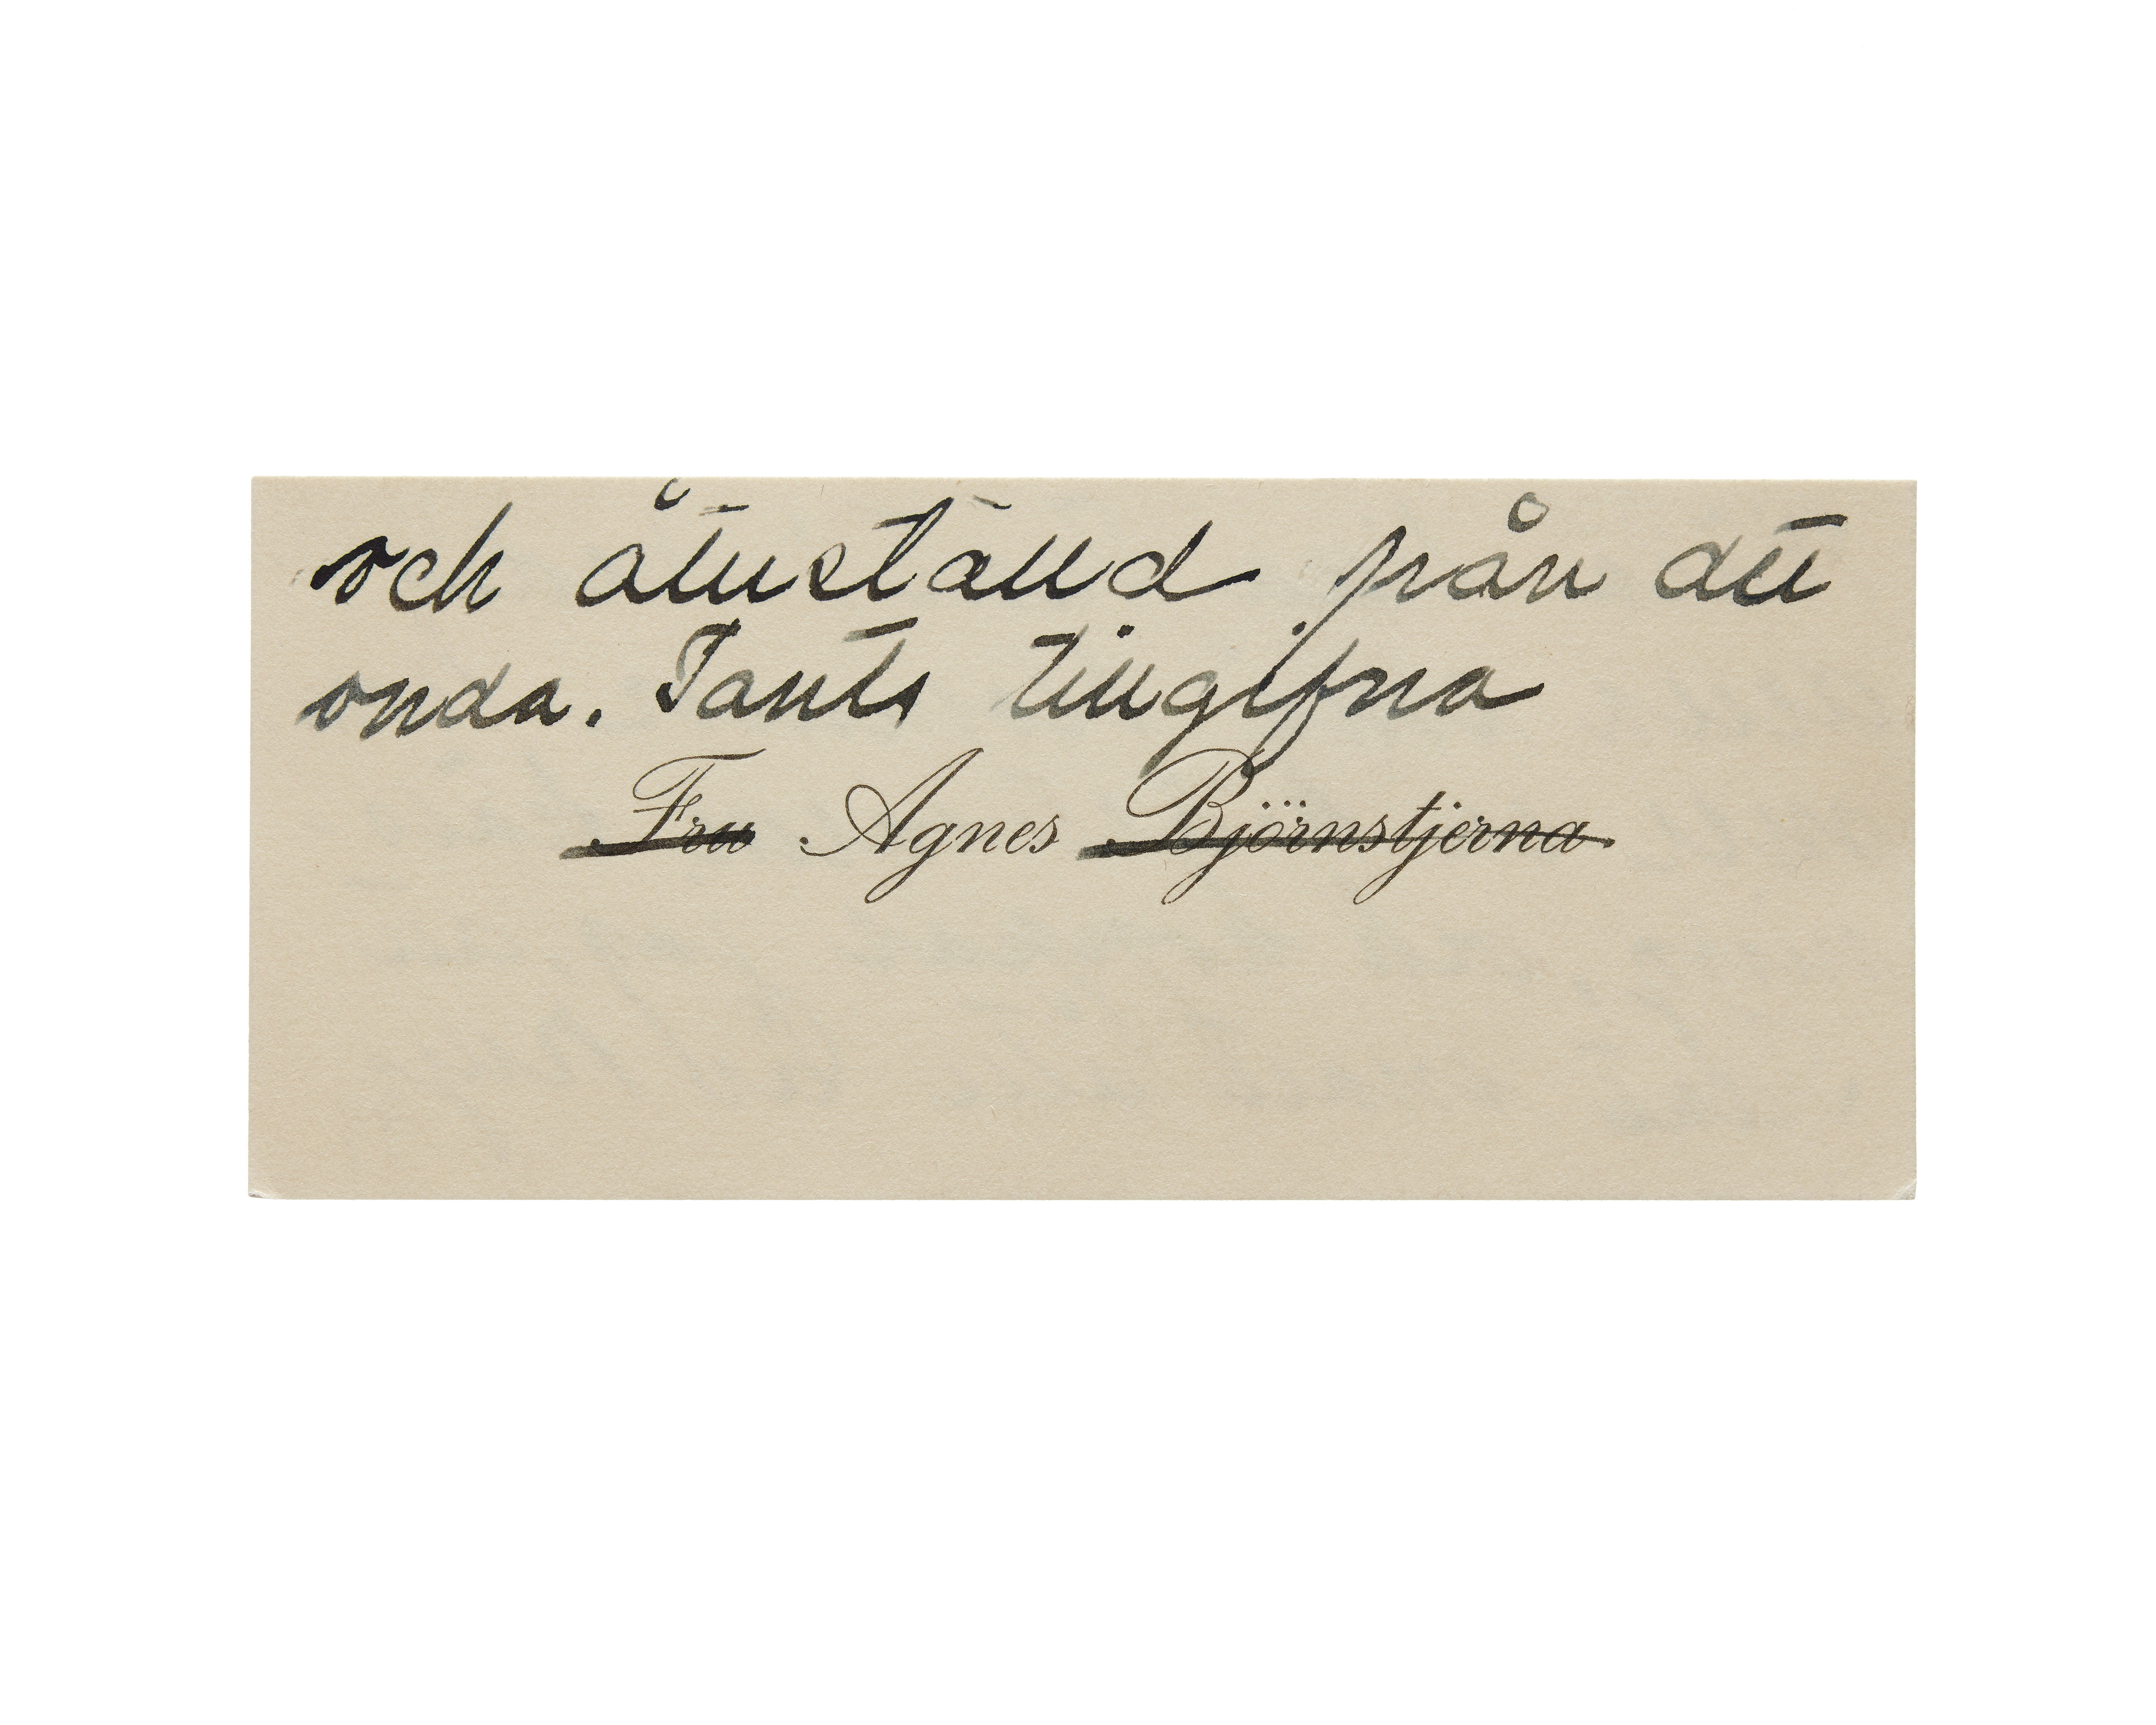 och återställd från det
onda. Tants tillgifna
Fru Agnes Björnstjerna